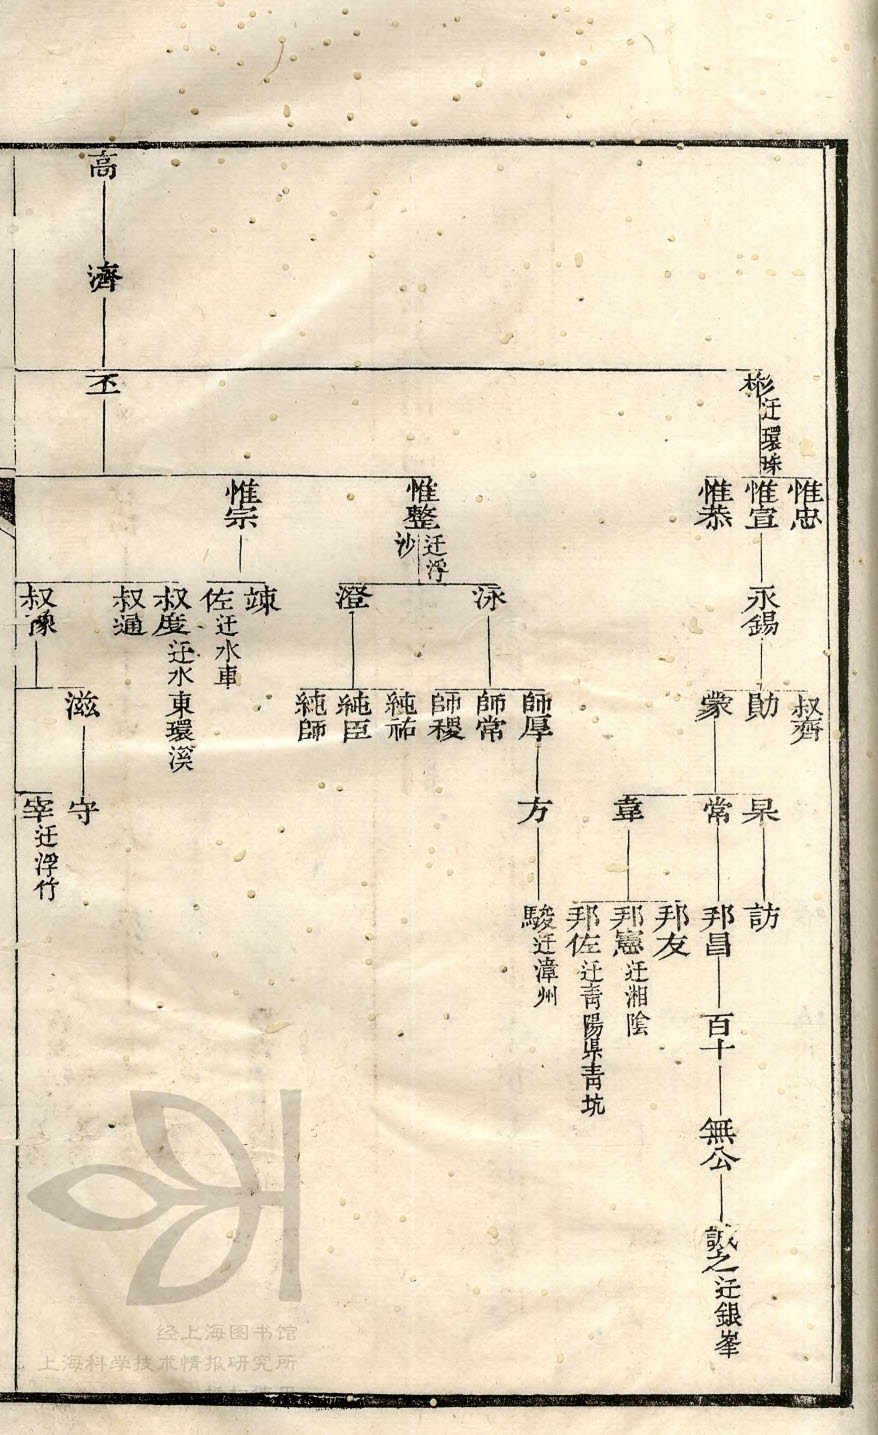 高
濟
彬迁環珠
丕
惟忠
惟宣
惟恭
惟整迁浮沙
惟宗
永錫
泳
澄
竦
佐迁水車
叔度迁水東環溪
叔通
叔豫
叔齊
勛
蒙
師厚
師常
師稷
純祐
純臣
純師
滋
杲
常
韋
方
守
宰迁浮竹
訪
邦昌
邦友
邦憲迁湘陰
邦佐迁青陽県青坑
駿迁漳州
百十
無公
誠之迁銀峯
经上海图书馆
上海科学技术情报研究所